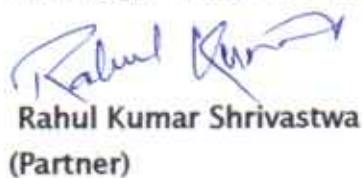 Rahul Kumar
Rahul Kumar Shrivastwa
(Partner)